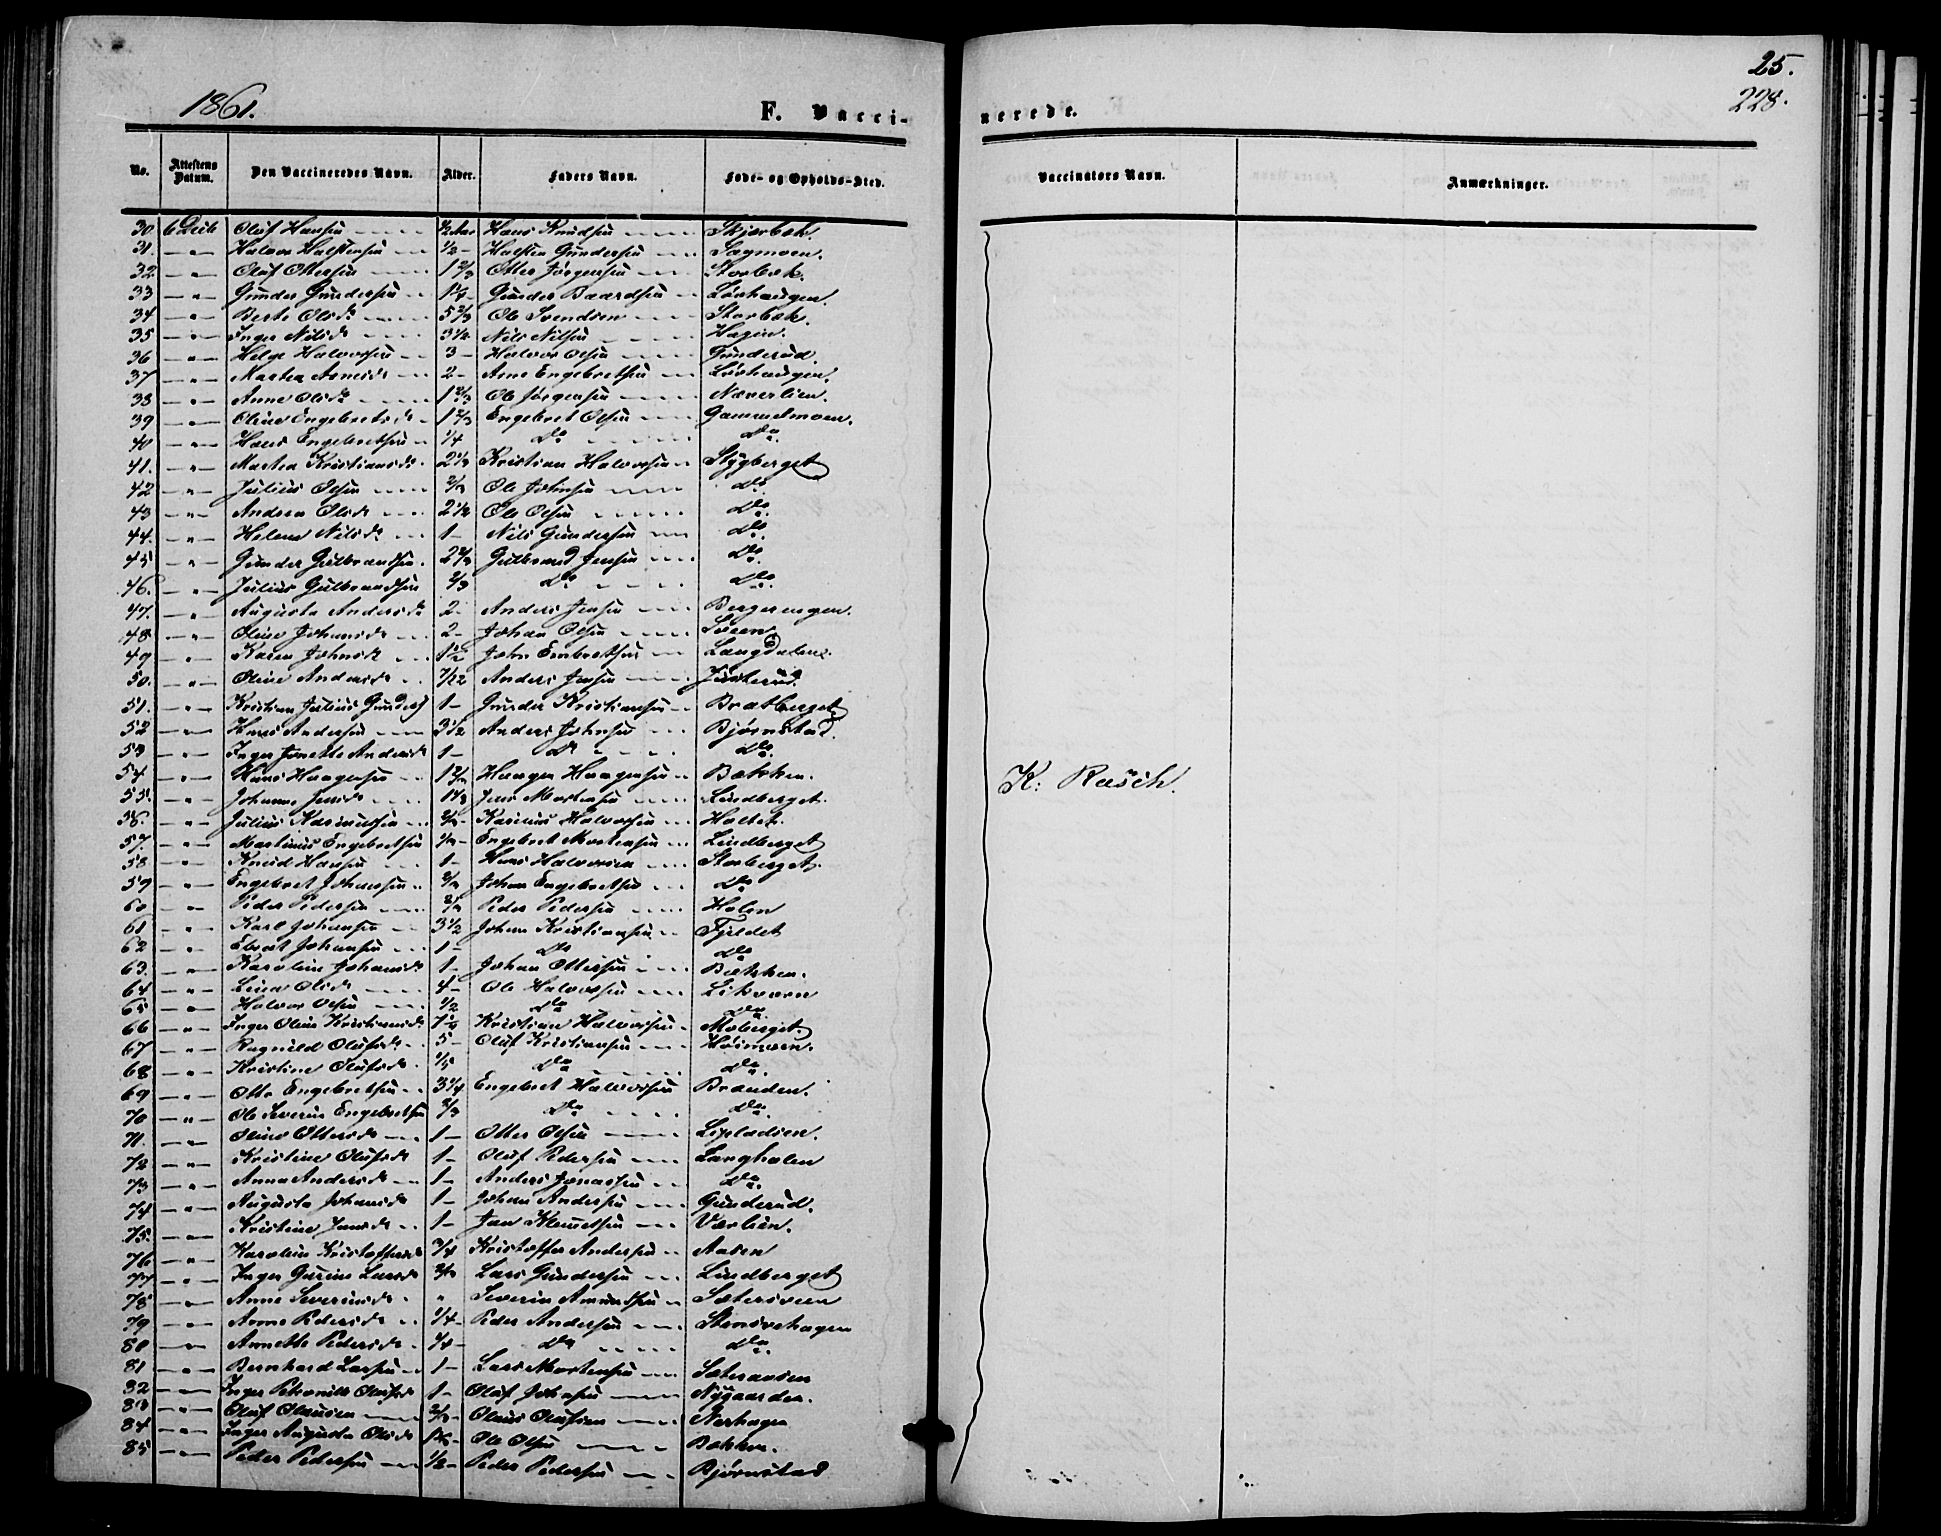 25.
1861. F. Vacci- nerede. 228.
No. Attestens Datum. Den Vaccineredes Navn. Alder. Faders Navn. Føde- og Opholds-Sted. Vaccinators Navn. Anmærkninger.
30. 6 Decb Oluf Hansen ½ Aar Hans Knudsen Skjærbæk.
31. — " — Halvor Halstensen ½ - Halsten Gundersen Sagmoen.
32 — " — Oluf Ottersen 1 ⅔ Otter Jørgensen Storbæk.
33 — " — Gunder Gundersen Gunder Baardsen Løvhaugen.
34 — " — Berte Olsdr 5 ⅔ Ole Svendsen Storbæk.
35 — " — Inger Nilsdr 3 ½ Nils Nilsen Hagen.
36 — " — Helge Halvorsen 3 - Halvor Olsen Gunderud.
37 — " — Martea Arnesdr 2 - Arne Engebretsen Løvhaugen.
38 — " — Anne Olsdr 1 ⅔ Ole Jørgensen Næverlien.
39 — " — Oline Engebretsdr 1 ⅔ Engebret Olsen Gammelmoen.
40 — " — Hans Engebretsen ¼ Do Do.
41. — " — Martea Kristiansdr 2 ⅓ Kristian Halvorsen Stygberget
42 — " — Julius Olsen ⅔ Ole Johnsen Do.
43 — " — Andrea Olsdr 2 ½ Ole Olsen Do.
44. — " — Helene Nilsdr 1 - Nils Gundersen Do.
45 — " — Gunder Gulbrandsen 2 ⅔ Gulbrand Jensen Do.
46. — " — Julius Gulbrandsen ⅔ Do Do.
47. — " — Augusta Andersdr 2. Anders Jensen Bergerengen.
48 — " — Oline Johansdr 2 - Johan Olsen Sveen
49 — " — Karen Johnsdr 1 ½ John Embretsen Langdalen.
50. — " — Oline Andersdr 7/12 Anders Jensen Justerud.
51. — " — Kristian Julius Gunders 1 - Gunder Kristiansen Bratberget
52 — " — Hans Andersen 3 ½ Anders Johnsen Bjørnstad.
53 — " — Inger Jonette Andersdr 1 - Do Do.
54 — " — Hans Haagensen 1 ⅔ Haagen Haagensen Bækken.
55. — " — Johanne Jensdr 1 ⅓ Jens Mortensen Lindberget.
56. — " — Julius Karinusen Karinus Halvorsen Holtet.
57. — " — Martinus Engebretsen Engebret Mortensen Lindberget
58 — " — Knud Hansen 1 - Hans Halvorsen Storberget.
59 — " — Engebret Johansen Johan Engebretsen Do
60 — " — Peder Pedersen Peder Pedersen Holen
61 — " — Karl Johansen 3 ½ Johan Kristiansen Fjeldet
62 — " — Johansen 1 - Do Do
63. — " — Karoline Johansdr 1 - Johan Ottersen Bækken.
64 — " — Lina Olsdr 4 - Ole Halvorsen Likværn
65 — " — Halvor Olsen ½ Do Do.
66 — " — Inger Oline Kristiansdr Kristian Halvorsen Moberget.
67 — " — Ragnild Olufsdr 5 - Oluf Kristiansen Høimoen.
68 — " — Kristine Olufsdr Do Do.
69 — " — Otto Engebretsen 3 ¼ Engebret Halvorsen Branden.
70 — " — Ole Severin Engebretsen ⅔ Do Do.
71. — " — Oline Ottersdr 1 - Otter Olsen
72 — " — Kristine Olufsdr 1 - Oluf Pedersen Langholen
73 — " — Anna Andersdr 1 - Anders Jonassen Do.
74 — " — Augusta Johansdr 1 - Johan Andersen Gunderud.
75. — " — Kristine Jansdr 1 - Jan Klemetsen Værlien.
76 — " — Karoline Kristoffersdr ¾ Kristoffer Andersen Aasen
77 — " — Inger Gurine Larsdr Lars Gundersen Lindberget
78 — " — Anne Severinsdr " Severin Amundsen Sætersveen
79 — " — Anne Pedersdr ¼ - Peder Andersen Stensvehagen
80 — " — Annette Pedersdr ¼ - Do Do.
81 — " — Bernhard Larsen 1 - Lars Mortensen Sæteraasen
82 — " — Inger Petronille Olufsdr 1 - Oluf Johnsen Nygaarden.
83 — " — Oluf Olausen Olaus Olufsen Nerhagen
84 — " — Inger Augusta Olsdr Ole Olsen Bakken.
85 — " — Peder Pedersen ½ - Peder Pedersen Bjørnstad
K: Rasch.